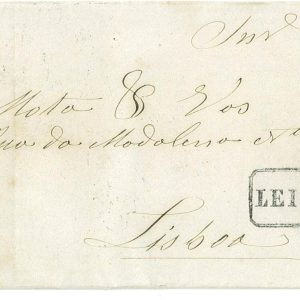 Snr
Mota & Vos
Rua da Madalena Nº
LEI
Lisboa